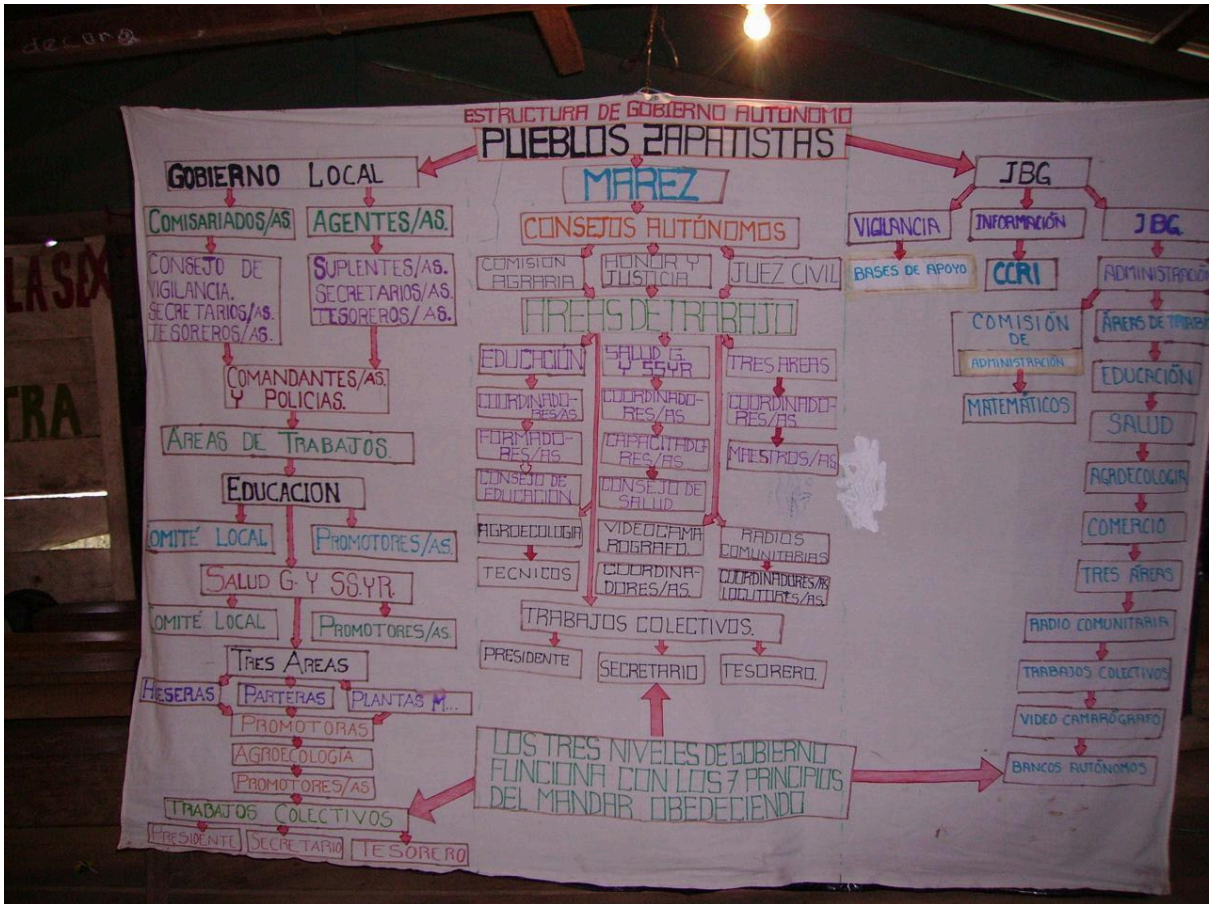 decora
LA SEX
TRA
ESTRUCTURA DE GOBIERNO AUTONOMO
PUEBLOS ZAPATISTAS
GOBIERNO LOCAL
COMISARIADOS/AS.
AGENTES/AS.
CONSEJO DE
VIGILANCIA.
SECRETARIOS/AS.
TESOREROS/AS.
SUPLENTES/AS.
SECRETARIOS/AS.
TESOREROS/AS.
COMANDANTES/AS.
Y POLICIAS.
ÁREAS DE TRABAJOS.
EDUCACION
OMITÉ LOCAL
PROMOTORES/AS.
SALUD G. Y SS.YR.
OMITÉ LOCAL
PROMOTORES/AS.
TRES AREAS
HESERAS
PARTERAS
PLANTAS M...
PROMOTORAS
AGROECOLOGÍA
PROMOTORES/AS
TRABAJOS COLECTIVOS
PRESIDENTE
SECRETARIO
TESORERO
MAREZ
CONSEJOS AUTÓNOMOS
COMISION
AGRARIA
HONOR Y
JUSTICIA
JUEZ CIVIL
AREAS DE TRABAJO
EDUCACIÓN
COORDINADO-
RES/AS.
FORMADO-
RES/AS
CONSEJO DE
EDUCACION
SALUD G.
Y SSYR
COORDINADO-
RES/AS
CAPACITADO-
RES/AS
CONSEJO DE
SALUD
TRES AREAS
COORDINADO-
RES/AS
MAESTROS/AS
AGROECOLOGIA
TECNICOS
VIDEOCAMA
ROGRAFO.
COORDINA-
DORES/AS.
RADIOS
COMUNITARIAS
COORDINADORES/AS
LOCUTORES/AS
TRABAJOS COLECTIVOS.
PRESIDENTE
SECRETARIO
TESORERO.
LOS TRES NIVELES DE GOBIERNO
FUNCIONA CON LOS 7 PRINCIPIOS
DEL MANDAR OBEDECIENDO
JBG
VIGILANCIA
BASES DE APOYO
INFORMACIÓN
CCRI
JBG
ADMINISTRACIÓ
COMISIÓN
DE
ADMINISTRACIÓN
MATEMÁTICOS
ÁREAS DE TRABA
EDUCACIÓN
SALUD
AGROECOLOGIA
COMERCIO
TRES ÁREAS
RADIO COMUNITARIA
TRABAJOS COLECTIVOS
VIDEO CAMARÓGRAFO
BANCOS AUTÓNOMOS